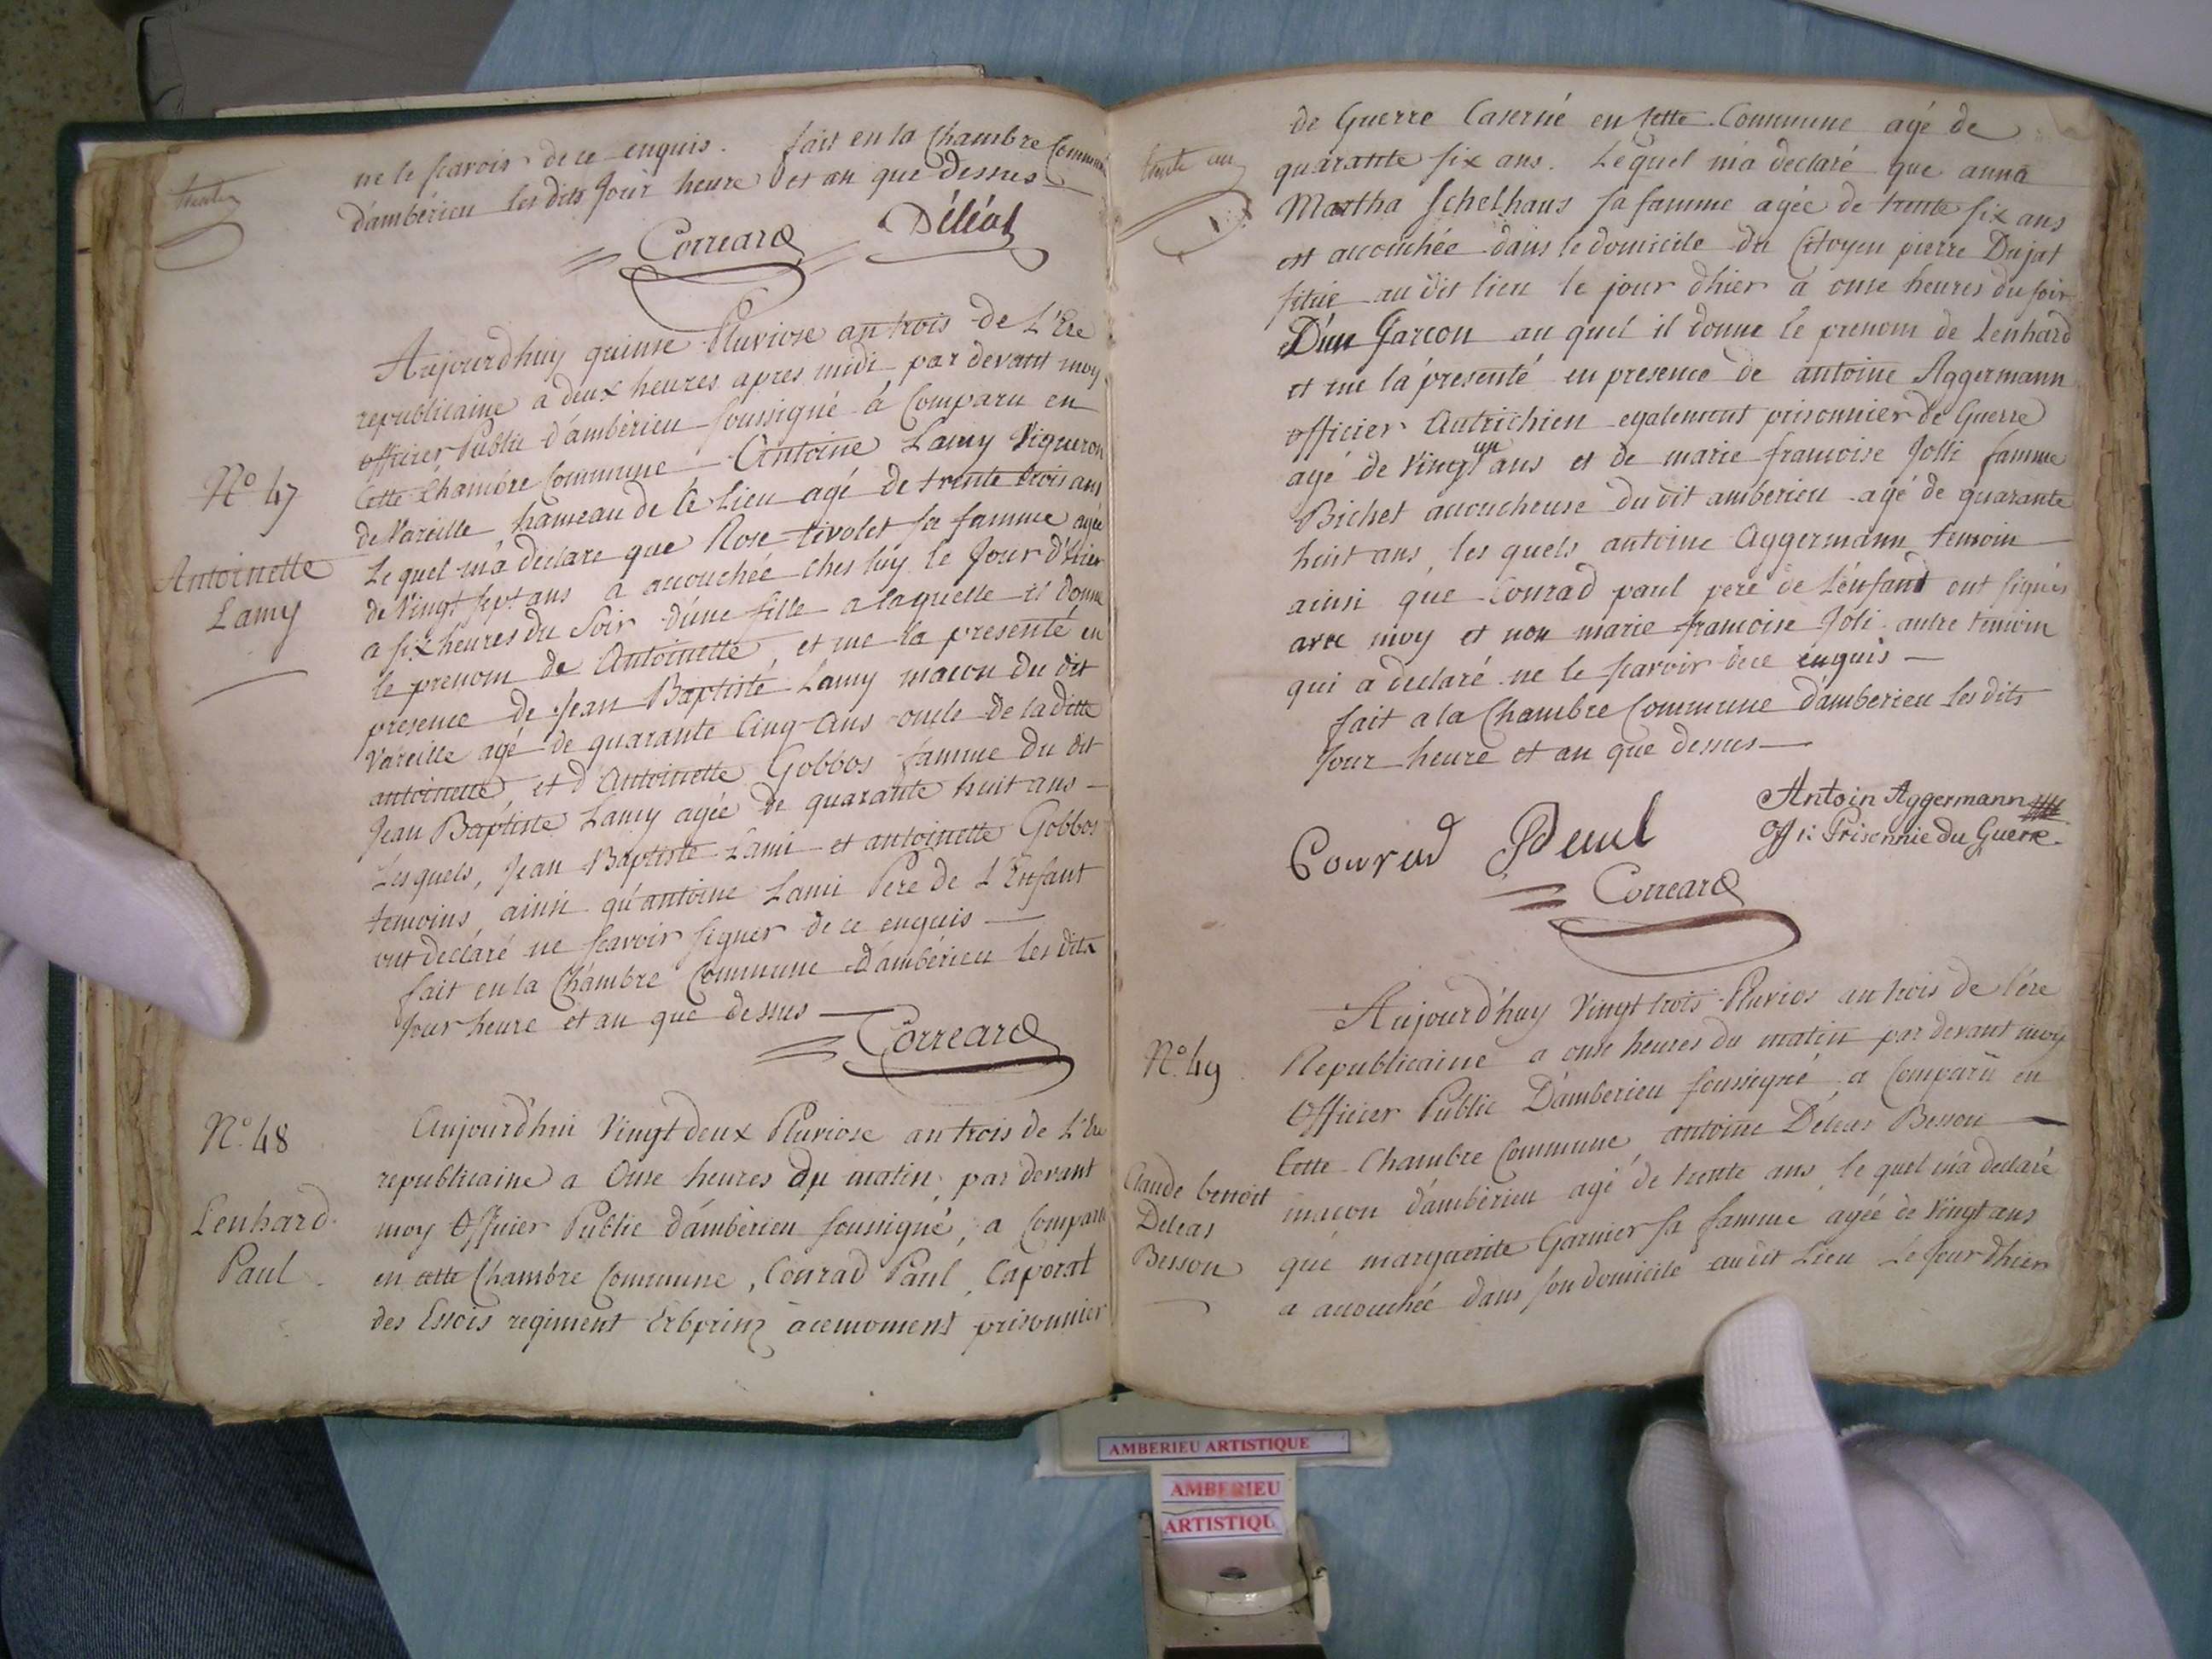 ne le scavoir de ce enquis. fait en la Chambre Commune
d'ambérieu les dits Jour heure et an que dessus
Correard Déléat
Aujourdhuy quinse Pluviose an trois de L'Ere
republicaine a deux heures apres midi par devant moy
officier Public d'ambérieu soussigné à Comparu en
Cette Chambre Commune Antoine Lamy Vigneron
de Vareille hameau de Ce Lieu agé de trente trois ans
Lequel m'a declare que Rose tivolet sa famme agée
de Vingt sept ans a accouchée ches luy le Jour d'hier
a six heures du Soir d'une fille a laquelle il donne
le prenom de Antoinette, et me la presenté en
presence de Jean Baptiste Lamy macon du dit
Vareille agé de quarante Cinq ans oncle de la ditte
antoinette et d'Antoinette Gobbos famme du dit
Jean Baptiste Lamy agée de quarante huit ans
Lesquels, Jean Baptiste Lami et antoinette Gobbos
temoins, ainsi qu'antoine Lami Pere de L'Enfant
ont declaré ne scavoir signer de ce enquis
fait en la Chambre Commune d'ambérieu les dits
Jour heure et an que dessus
Correard
N° 47
Antoinette
Lamy
N° 48
Lenhard
Paul
Aujourd'hui Vingt deux Pluviose an trois de L'Ere
republicaine a Onse heures du matin, par devant
moy Officier Public d'ambérieu soussigné, a Comparu
en cette Chambre Commune, Conrad Paul, Caporal
des Essois regiment Erbprinz acemoment prisonnier
trente un
de Guerre Caserné en cette Commune agé de
quarante six ans. Lequel m'a declaré que anna
Martha Schelhaus sa famme agée de trente six ans
est accouchée dans le domicile du Citoyen pierre Dujat
situé au dit lieu le jour d'hier a onse heures du soir
D'un Garcon au quel il donne le prenom de Lenhard
et me la presenté en presence de antoine Aggermann
officier Autrichien egalement prisonnier de Guerre
agé de Vingt un ans et de marie francoise Jolli famme
Bichet accoucheuse du dit amberieu agé de quarante
huit ans, les quels antoine Aggermann temoin
ainsi que Conrad paul pere de L'enfant ont signés
avec moy et non marie francoise Joli autre temoin
qui a declaré ne le scavoir de ce enquis
fait a la Chambre Commune d'amberieu les dits
Jour heure et an que dessus
Antoin Aggermann
Off r: Prisonnie du Guerre.
Conrad Paul
Correard
N° 49
Claude benoit
Deleas
Besson
Aujourd'huy Vingt trois Pluvios an trois de l'ére
Republicaine a onse heures du matin par devant moy
Officier Public D'amberieu soussigné a Comparu en
Cette Chambre Commune, antoine Déleas Besson
macon d'amberieu agé de trente ans, le quel m'a declaré
que marguerite Garnier sa famme agée de Vingt ans
a accouchée dans son domicile audit Lieu Le Jour d'hier
AMBERIEU ARTISTIQUE
AMBERIEU
ARTISTIQU